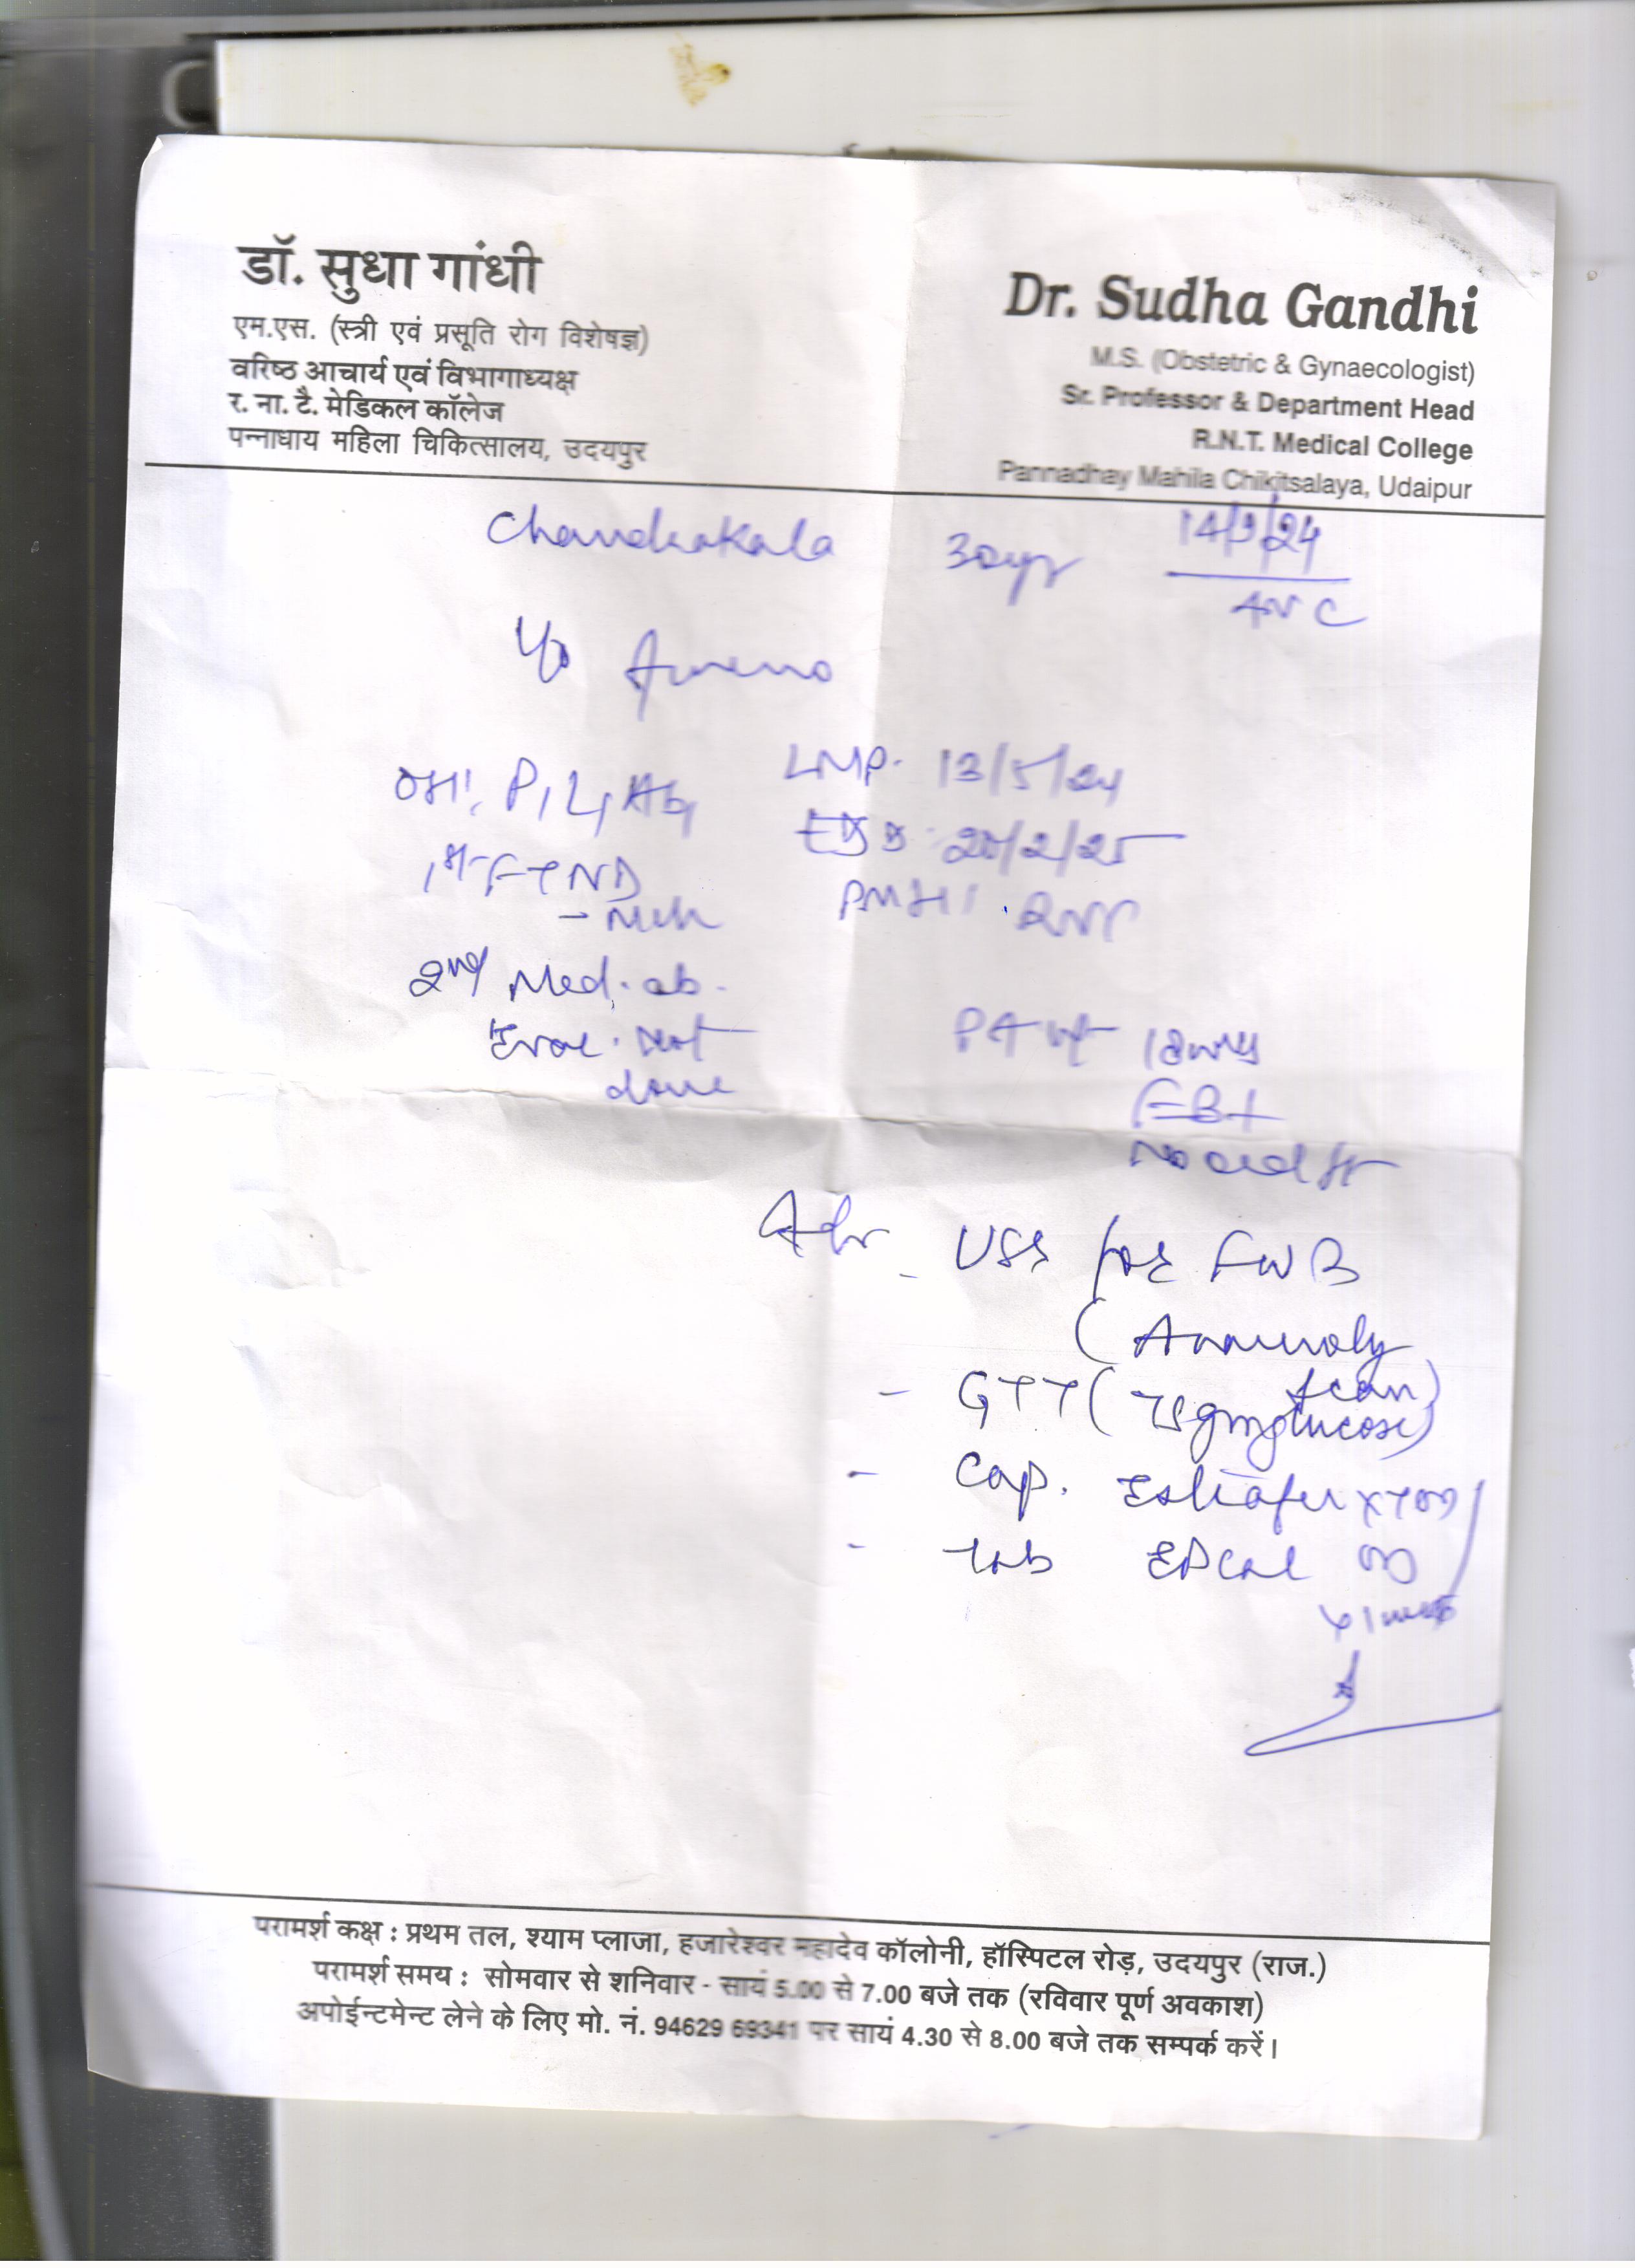 डॉ. सुधा गांधी
एम.एस. (स्त्री एवं प्रसूति रोग विशेषज्ञ)
वरिष्ठ आचार्य एवं विभागाध्यक्ष
र. ना. टै. मेडिकल कॉलेज
पन्नाधाय महिला चिकित्सालय, उदयपुर
Dr. Sudha Gandhi
M.S. (Obstetric & Gynaecologist)
Sr. Professor & Department Head
R.N.T. Medical College
Pannadhay Mahila Chikitsalaya, Udaipur
Chandrakala 30yr 14/9/24
ANC
LMP. 13/5/24
EDD 20/2/25
PMH
1st FTND
2nd Med. ab.
Evac. not
done
PA ut 18wks
FB+
Adv - USS for FWB
(Anomoly
scan)
- GTT (75gm glucose)
- Cap. x 1 OD
- Tab EPCAL OD
x 1
परामर्श कक्ष : प्रथम तल, श्याम प्लाजा, हजारेश्वर महादेव कॉलोनी, हॉस्पिटल रोड़, उदयपुर (राज.)
परामर्श समय : सोमवार से शनिवार - सायं 5.00 से 7.00 बजे तक (रविवार पूर्ण अवकाश)
अपोईन्टमेन्ट लेने के लिए मो. नं. 94629 69341 पर सायं 4.30 से 8.00 बजे तक सम्पर्क करें।